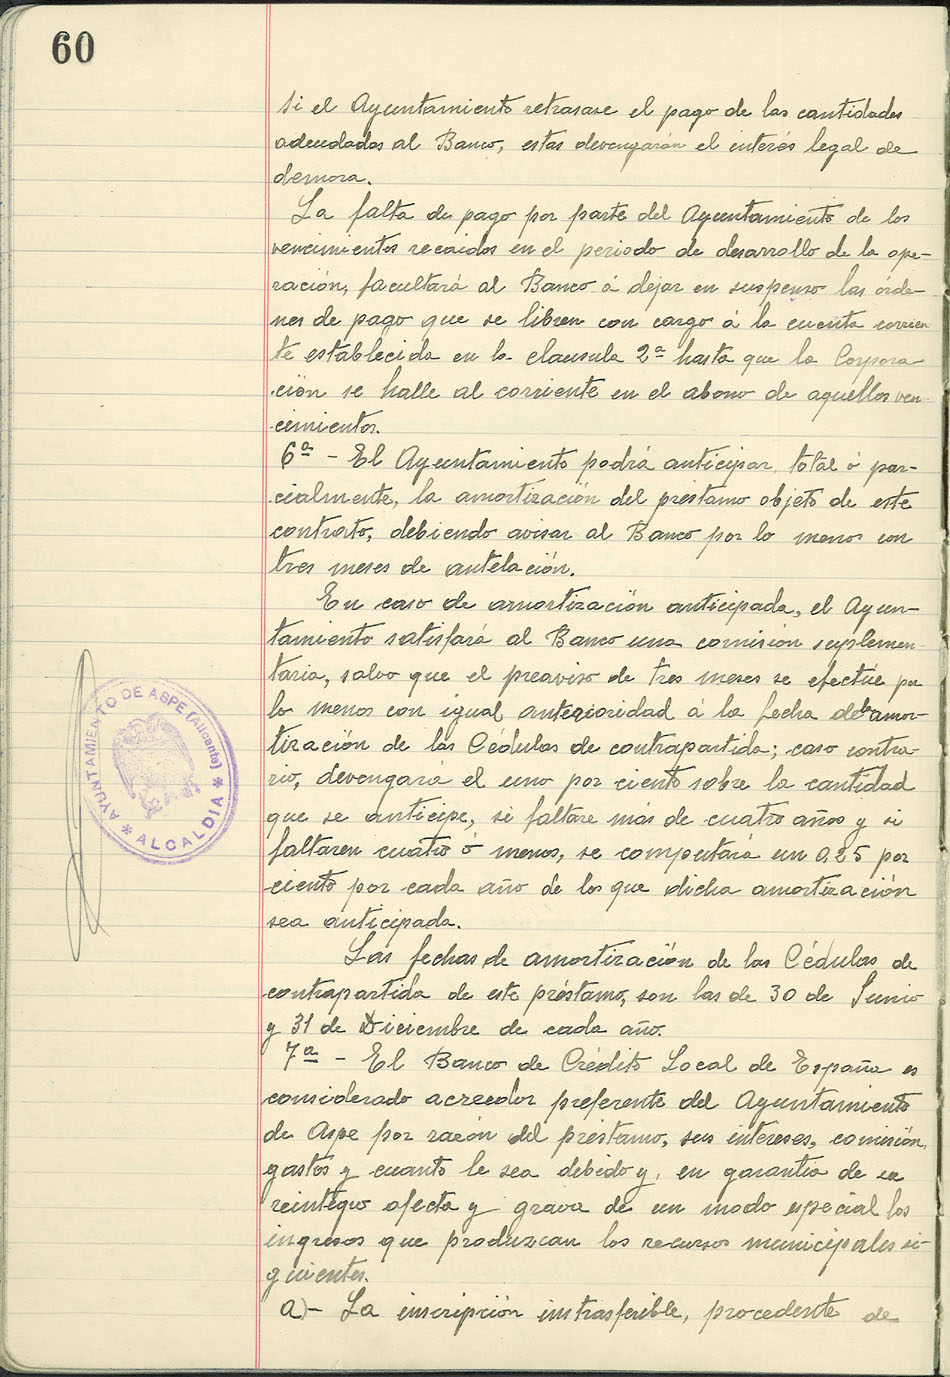 60
Si el Ayuntamiento retrasase el pago de las cantidades
adeudadas al Banco, estas devengarán el interés legal de
demora.
La falta de pago por parte del Ayuntamiento de los
vencimientos recaidos en el periodo de desarrollo de la ope-
ración, facultará al Banco á dejar en suspenso las órde-
nes de pago que se libren con cargo á la cuenta corrien
te establecida en la clausula 2ª hasta que la Corpora
ción se halle al corriente en el abono de aquellos ven-
cimientos.
6ª - El Ayuntamiento podrá anticipar, total ó par-
cialmente, la amortización del préstamo objeto de este
contrato, debiendo avisar al Banco por lo menos con
tres meses de antelación.
En caso de amortización anticipada, el Ayun-
tamiento satisfará al Banco una comisión suplemen-
taria, salvo que el preaviso de tres meses se efectúe por
lo menos con igual anterioridad á la fecha de la amor-
tización de las Cédulas de contrapartida; caso contra-
rio, devengará el uno por ciento sobre la cantidad
que se anticipe, si faltare más de cuatro años y si
faltaren cuatro ó menos, se computará un 0,25 por
ciento por cada año de los que dicha amortización
sea anticipada.
Las fechas de amortización de las Cédulas de
contrapartida de este préstamo, son las de 30 de Junio
y 31 de Diciembre de cada año.
7ª - El Banco de Crédito Local de España es
considerado acreedor preferente del Ayuntamiento
de Aspe por razón del préstamo, sus intereses, comisión,
gastos y cuanto le sea debido y, en garantia de su
reintegro afecta y grava de un modo especial los
ingresos que produzcan los recursos municipales si-
guientes.
a)- La inscripción intrasferible, procedente de
AYUNTAMIENTO DE ASPE (Alicante)
* ALCALDIA *